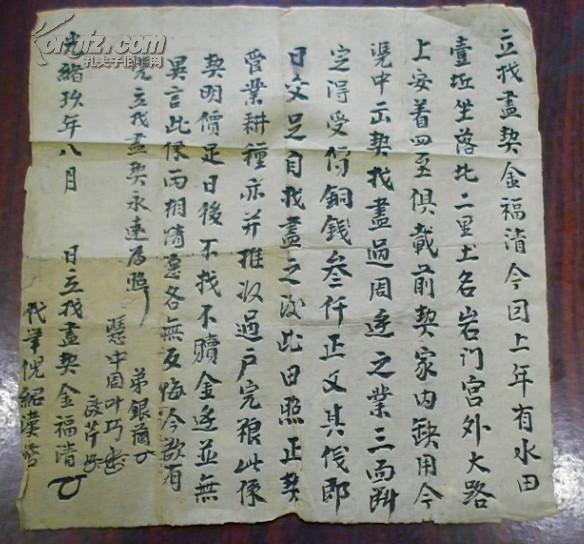 立找盡契金福清今因上年有水田
壹坵坐落北二里土名岩门宫外大路
上安着四至俱載前契家内缺用今
憑中立契找盡過周逢之業三面斷
定得受價銅錢叁仟正文其伐郎
日交足自找盡之後此田照正契
管業耕種亦并推收過户完粮此係
契明價足日後不找不贖金逢並無
異言此係两相情愿各無反悔今欲有
凭立找盡契永遠為照
光緒玖年八月 日立找盡契金福清
弟銀
憑中因叶巧
代筆倪紹漢
kongfz.com
孔夫子旧书网